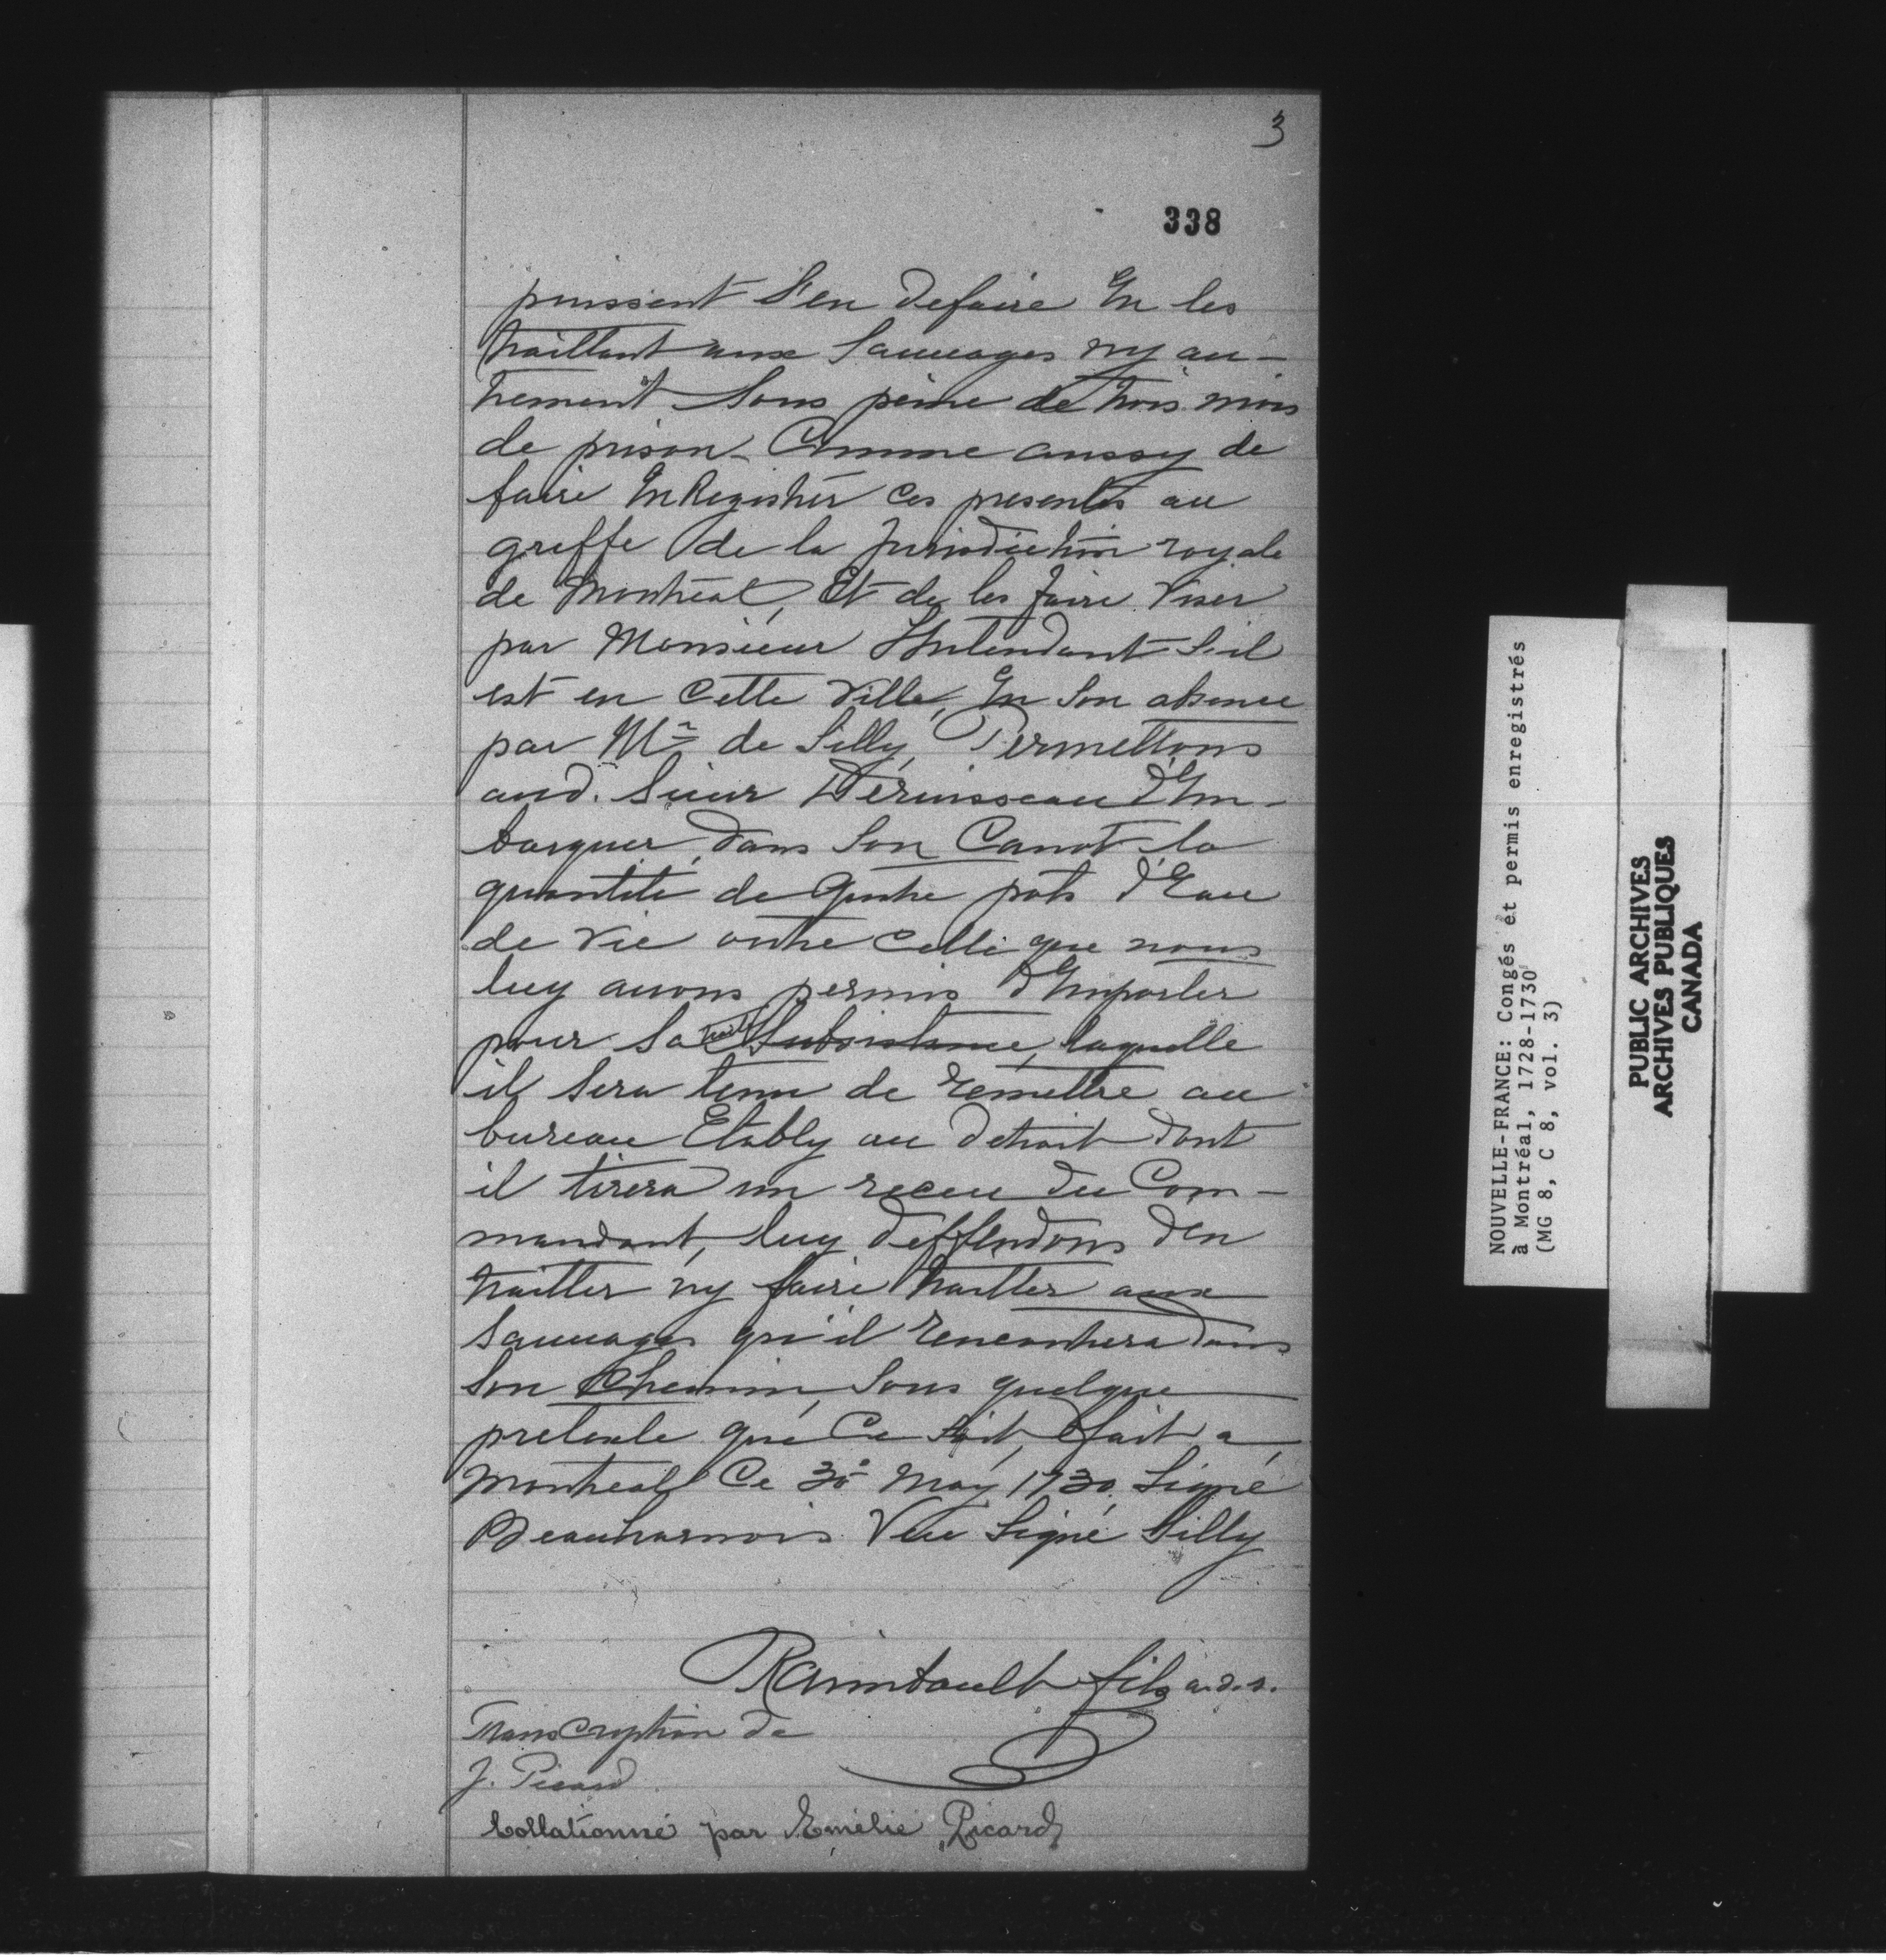 3
338
puissent S'en defaire En les
traittant aux Sauuages ny au-
trement Sous peine de trois mois
de prison - Comme aussy de
faire EnRegistrer ces presentes au
greffe de la Jurisdiction royale
de Montreal, Et de les faire Viser
par Monsieur L'Intendant S'il
est en Cette Ville, En Son absence
par Mr de Silly, Permettons
aud. Sieur Deruisseau d'Em-
barquer dans Son Canot la
quantité de Quatre pots d'Eau
de Vie outre Celle que nous
luy auons permis d'Emporter
pour Sa Subsistance, laquelle
il Sera tenu de remettre au
bureau Etably au detroit dont
il tirera un receu du Com-
mandant, luy deffendons d'en
traitter ny faire traitter aux
Sauuages qu'il rencontrera dans
Son Chemin, Sous quelque
pretexte que Ce soit, fait a
Montreal Ce 30e May 1730. Signé
Beauharnois Veu Signé Silly
Raimbault fils
TransCryption de
J. Picard
Collationné par Emélie Picard
NOUVELLE-FRANCE: Congés et permis enregistrés
à Montréal, 1728-1730
(MG 8, C 8, vol. 3)
PUBLIC ARCHIVES
ARCHIVES PUBLIQUES
CANADA